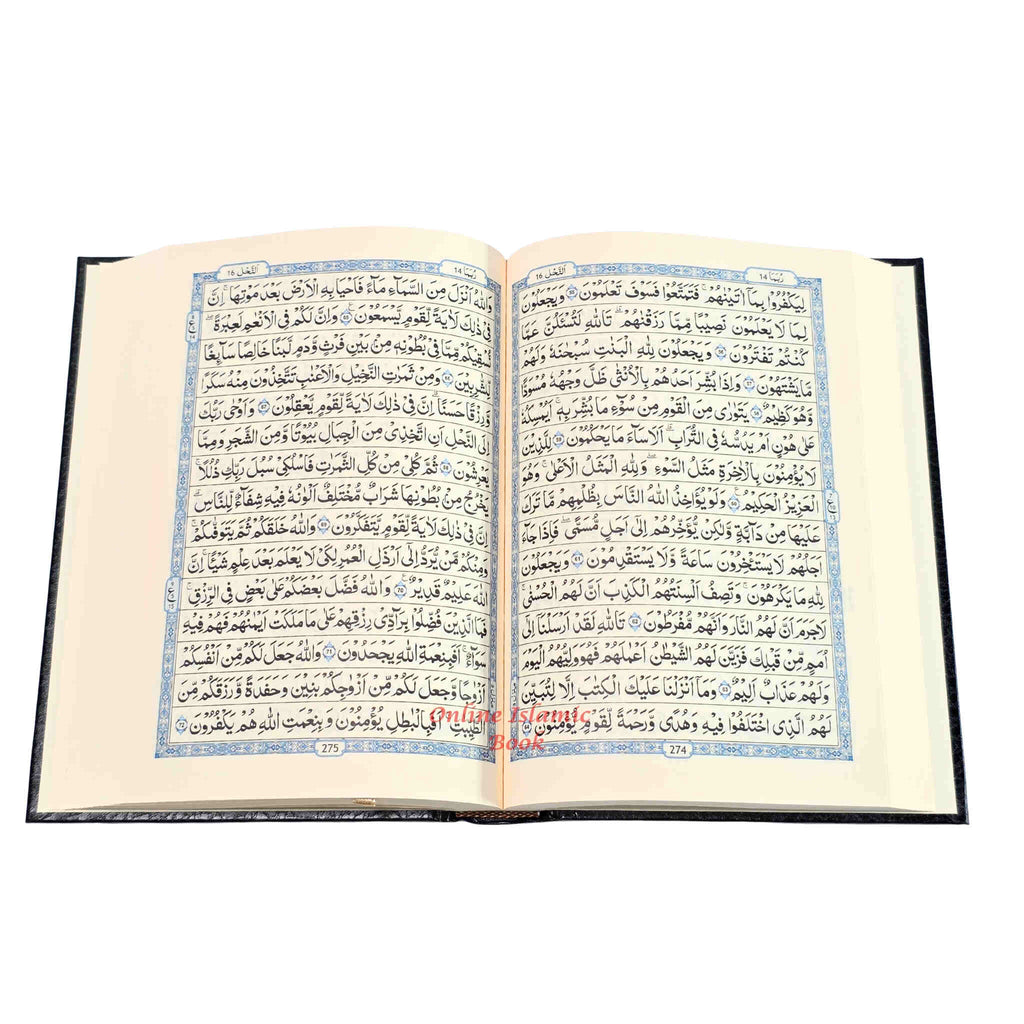 رُبَمَا 14
اَلنَّحْل 16
لِيَكْفُرُوْا بِمَاۤ اٰتَيْنٰهُمْ ؕ فَتَمَتَّعُوْا فَسَوْفَ تَعْلَمُوْنَ ۝۵۵ وَيَجْعَلُوْنَ
لِمَا لَا يَعْلَمُوْنَ نَصِيْبًا مِّمَّا رَزَقْنٰهُمْ ؕ تَاللّٰهِ لَتُسْـَٔلُنَّ عَمَّا
كُنْتُمْ تَفْتَرُوْنَ ۝۵۶ وَيَجْعَلُوْنَ لِلّٰهِ الْبَنٰتِ سُبْحٰنَهٗ وَلَهُمْ
مَّا يَشْتَهُوْنَ ۝۵۷ وَاِذَا بُشِّرَ اَحَدُهُمْ بِالْاُنْثٰى ظَلَّ وَجْهُهٗ مُسْوَدًّا
وَّهُوَ كَظِيْمٌ ۝۵۸ يَتَوَارٰى مِنَ الْقَوْمِ مِنْ سُوْٓءِ مَا بُشِّرَ بِهٖ ؕ اَيُمْسِكُهٗ
عَلٰى هُوْنٍ اَمْ يَدُسُّهٗ فِى التُّرَابِ ؕ اَلَا سَآءَ مَا يَحْكُمُوْنَ ۝۵۹ لِلَّذِيْنَ
لَا يُؤْمِنُوْنَ بِالْاٰخِرَةِ مَثَلُ السَّوْءِ ۚ وَلِلّٰهِ الْمَثَلُ الْاَعْلٰى ؕ وَهُوَ
الْعَزِيْزُ الْحَكِيْمُ ۝۶۰ وَلَوْ يُؤَاخِذُ اللّٰهُ النَّاسَ بِظُلْمِهِمْ مَّا تَرَكَ
عَلَيْهَا مِنْ دَآبَّةٍ وَّلٰكِنْ يُّؤَخِّرُهُمْ اِلٰٓى اَجَلٍ مُّسَمًّى ۚ فَاِذَا جَآءَ
اَجَلُهُمْ لَا يَسْتَـْٔخِرُوْنَ سَاعَةً وَّلَا يَسْتَقْدِمُوْنَ ۝۶۱ وَيَجْعَلُوْنَ
لِلّٰهِ مَا يَكْرَهُوْنَ وَتَصِفُ اَلْسِنَتُهُمُ الْكَذِبَ اَنَّ لَهُمُ الْحُسْنٰى ؕ
لَا جَرَمَ اَنَّ لَهُمُ النَّارَ وَاَنَّهُمْ مُّفْرَطُوْنَ ۝۶۲ تَاللّٰهِ لَقَدْ اَرْسَلْنَاۤ اِلٰٓى
اُمَمٍ مِّنْ قَبْلِكَ فَزَيَّنَ لَهُمُ الشَّيْطٰنُ اَعْمَالَهُمْ فَهُوَ وَلِيُّهُمُ الْيَوْمَ
وَلَهُمْ عَذَابٌ اَلِيْمٌ ۝۶۳ وَمَاۤ اَنْزَلْنَا عَلَيْكَ الْكِتٰبَ اِلَّا لِتُبَيِّنَ
لَهُمُ الَّذِى اخْتَلَفُوْا فِيْهِ وَهُدًى وَّرَحْمَةً لِّقَوْمٍ يُّؤْمِنُوْنَ ۝۶۴
274
رُبَمَا 14
اَلنَّحْل 16
وَاللّٰهُ اَنْزَلَ مِنَ السَّمَآءِ مَآءً فَاَحْيَا بِهِ الْاَرْضَ بَعْدَ مَوْتِهَا ؕ اِنَّ
فِىْ ذٰلِكَ لَاٰيَةً لِّقَوْمٍ يَّسْمَعُوْنَ ۝۶۵ وَاِنَّ لَكُمْ فِى الْاَنْعَامِ لَعِبْرَةً ؕ
نُسْقِيْكُمْ مِّمَّا فِىْ بُطُوْنِهٖ مِنْۢ بَيْنِ فَرْثٍ وَّدَمٍ لَّبَنًا خَالِصًا سَآئِغًا
لِّلشّٰرِبِيْنَ ۝۶۶ وَمِنْ ثَمَرٰتِ النَّخِيْلِ وَالْاَعْنَابِ تَتَّخِذُوْنَ مِنْهُ سَكَرًا
وَّرِزْقًا حَسَنًا ؕ اِنَّ فِىْ ذٰلِكَ لَاٰيَةً لِّقَوْمٍ يَّعْقِلُوْنَ ۝۶۷ وَاَوْحٰى رَبُّكَ
اِلَى النَّحْلِ اَنِ اتَّخِذِىْ مِنَ الْجِبَالِ بُيُوْتًا وَّمِنَ الشَّجَرِ وَمِمَّا
يَعْرِشُوْنَ ۝۶۸ ثُمَّ كُلِىْ مِنْ كُلِّ الثَّمَرٰتِ فَاسْلُكِىْ سُبُلَ رَبِّكِ ذُلُلًا ؕ
يَخْرُجُ مِنْۢ بُطُوْنِهَا شَرَابٌ مُّخْتَلِفٌ اَلْوَانُهٗ فِيْهِ شِفَآءٌ لِّلنَّاسِ ؕ
اِنَّ فِىْ ذٰلِكَ لَاٰيَةً لِّقَوْمٍ يَّتَفَكَّرُوْنَ ۝۶۹ وَاللّٰهُ خَلَقَكُمْ ثُمَّ يَتَوَفّٰىكُمْ ۙ
وَمِنْكُمْ مَّنْ يُّرَدُّ اِلٰٓى اَرْذَلِ الْعُمُرِ لِكَىْ لَا يَعْلَمَ بَعْدَ عِلْمٍ شَيْـًٔا ؕ اِنَّ
اللّٰهَ عَلِيْمٌ قَدِيْرٌ ۝۷۰ وَاللّٰهُ فَضَّلَ بَعْضَكُمْ عَلٰى بَعْضٍ فِى الرِّزْقِ ۚ
فَمَا الَّذِيْنَ فُضِّلُوْا بِرَآدِّىْ رِزْقِهِمْ عَلٰى مَا مَلَكَتْ اَيْمَانُهُمْ فَهُمْ فِيْهِ
سَوَآءٌ ؕ اَفَبِنِعْمَةِ اللّٰهِ يَجْحَدُوْنَ ۝۷۱ وَاللّٰهُ جَعَلَ لَكُمْ مِّنْ اَنْفُسِكُمْ
اَزْوَاجًا وَّجَعَلَ لَكُمْ مِّنْ اَزْوَاجِكُمْ بَنِيْنَ وَحَفَدَةً وَّرَزَقَكُمْ مِّنَ
الطَّيِّبٰتِ ؕ اَفَبِالْبَاطِلِ يُؤْمِنُوْنَ وَبِنِعْمَتِ اللّٰهِ هُمْ يَكْفُرُوْنَ ۝۷۲
275
Online Islamic
Book